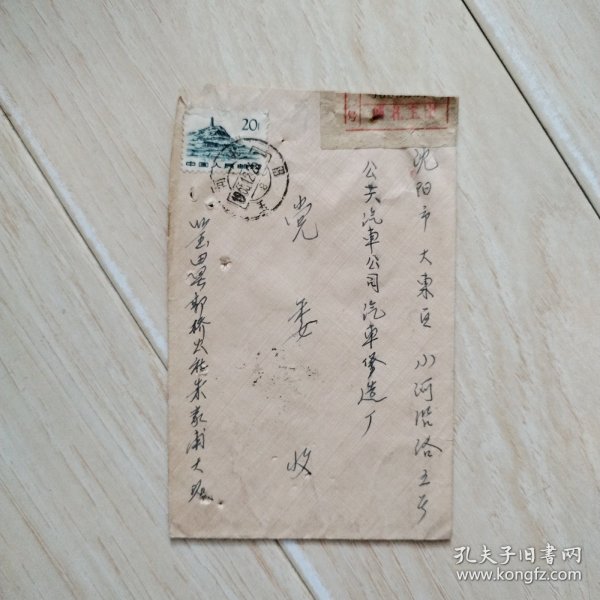 沈阳市大东区小河沿路五号
公共汽车公司汽车修造厂
党委收
蓝田县邹桥公社朱家浦大队
20
中国人民邮政
孔夫子旧书网
www.kongfz.com